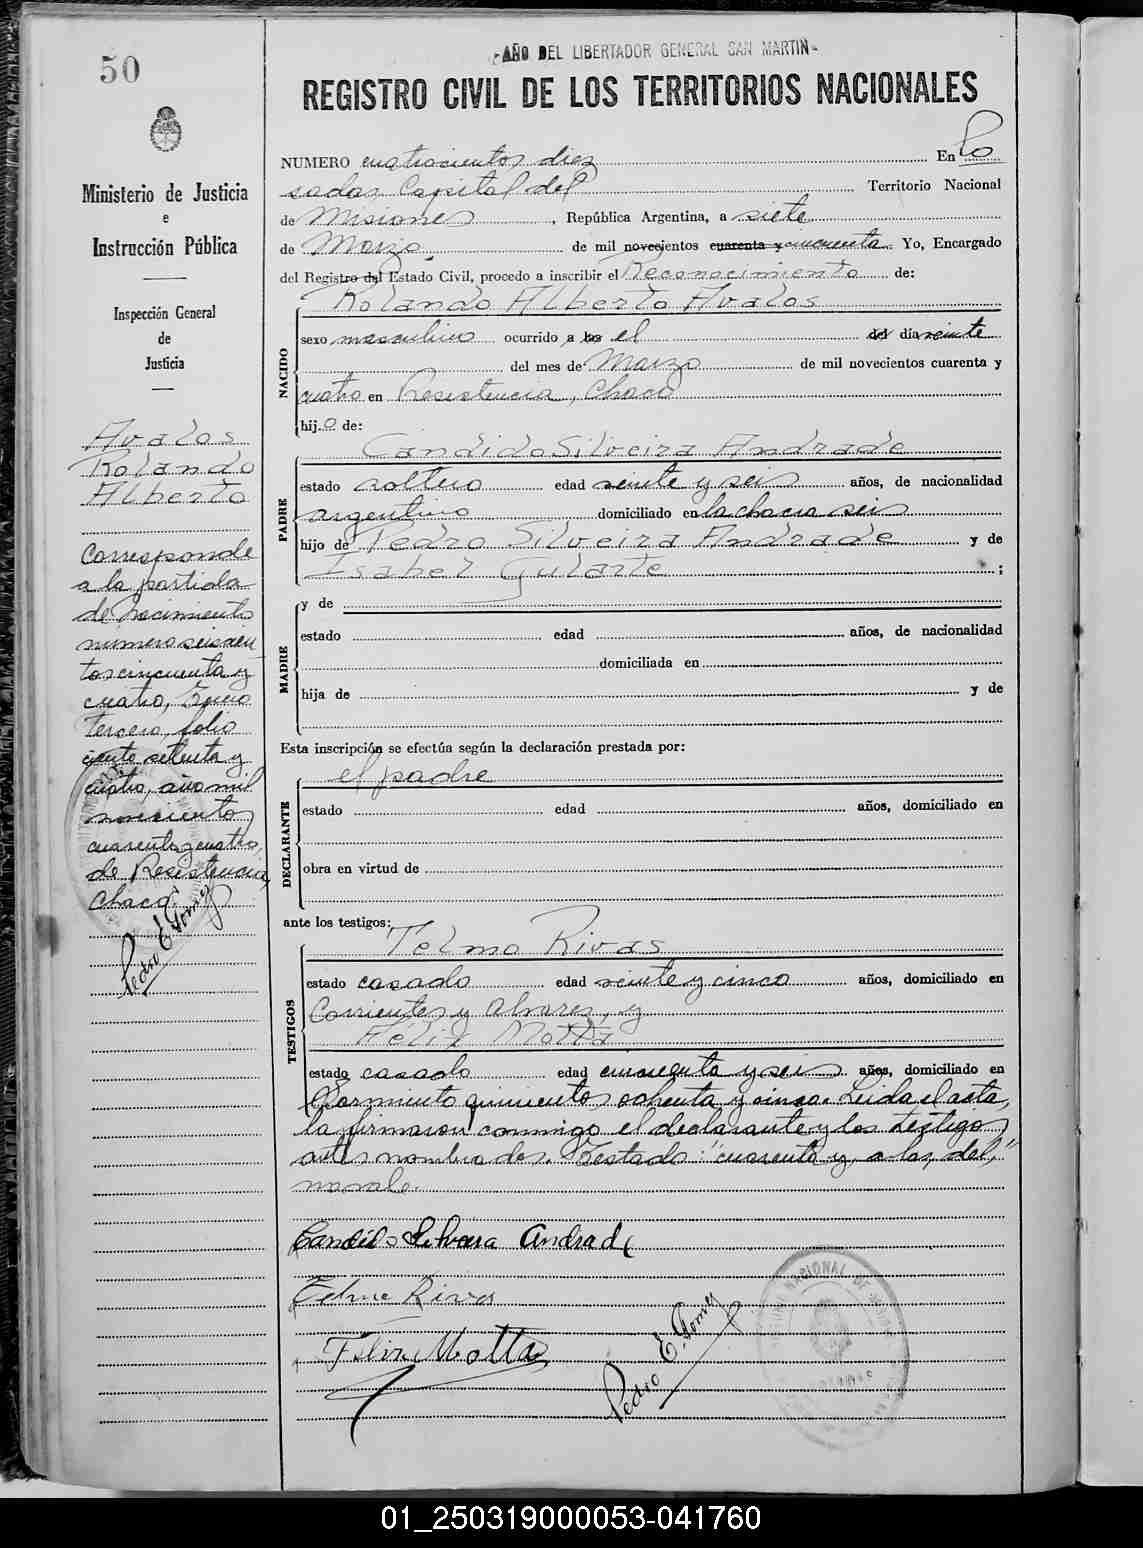 50
AÑO DEL LIBERTADOR GENERAL SAN MARTIN
REGISTRO CIVIL DE LOS TERRITORIOS NACIONALES
Ministerio de Justicia
e
Instrucción Pública
Inspección General
de
Justicia
Avalos
Rolando
Alberto
Corresponde
a la partida
de nacimiento
número seiscien
tos cincuenta y
cuatro, Tomo
tercero, folio
ciento setenta y
cuatro, año mil
novecientos
cuarenta y cuatro,
de Resistencia,
Chaco.
Pedro E. Gomez
NUMERO cuatrocientos diez En Po
sadas Capital del Territorio Nacional
de Misiones, República Argentina, a siete
de Marzo de mil novecientos cuarenta y cincuenta. Yo, Encargado
del Registro del Estado Civil, procedo a inscribir el Reconocimiento de:
Rolando Alberto Avalos
NACIDO
sexo masculino ocurrido a las el del día veinte
del mes de Marzo de mil novecientos cuarenta y
cuatro en Resistencia, Chaco
hijo de:
Candido Silveira Andrade
PADRE
estado soltero edad veinte y seis años, de nacionalidad
argentino domiciliado en la chacra seis
hijo de Pedro Silveira Andrade y de
Isabel Gularte ;
MADRE
y de
estado edad años, de nacionalidad
domiciliada en
hija de y de
Esta inscripción se efectúa según la declaración prestada por:
el padre
DECLARANTE
estado edad años, domiciliado en
obra en virtud de
ante los testigos:
Telmo Rivas
TESTIGOS
estado casado edad veinte y cinco años, domiciliado en
Corrientes y Alvares, y
Félix Motta
estado casado edad cincuenta y seis años, domiciliado en
Sarmiento quinientos ochenta y cinco. Leida el acta,
la firmaron conmigo el declarante y los testigos
antes nombrados. Testado: "cuarenta y, a las, del,"
no vale.
Candido Silveira Andrade
Telmo Rivas
Felix Motta
Pedro E. Gomez
01_250319000053-041760